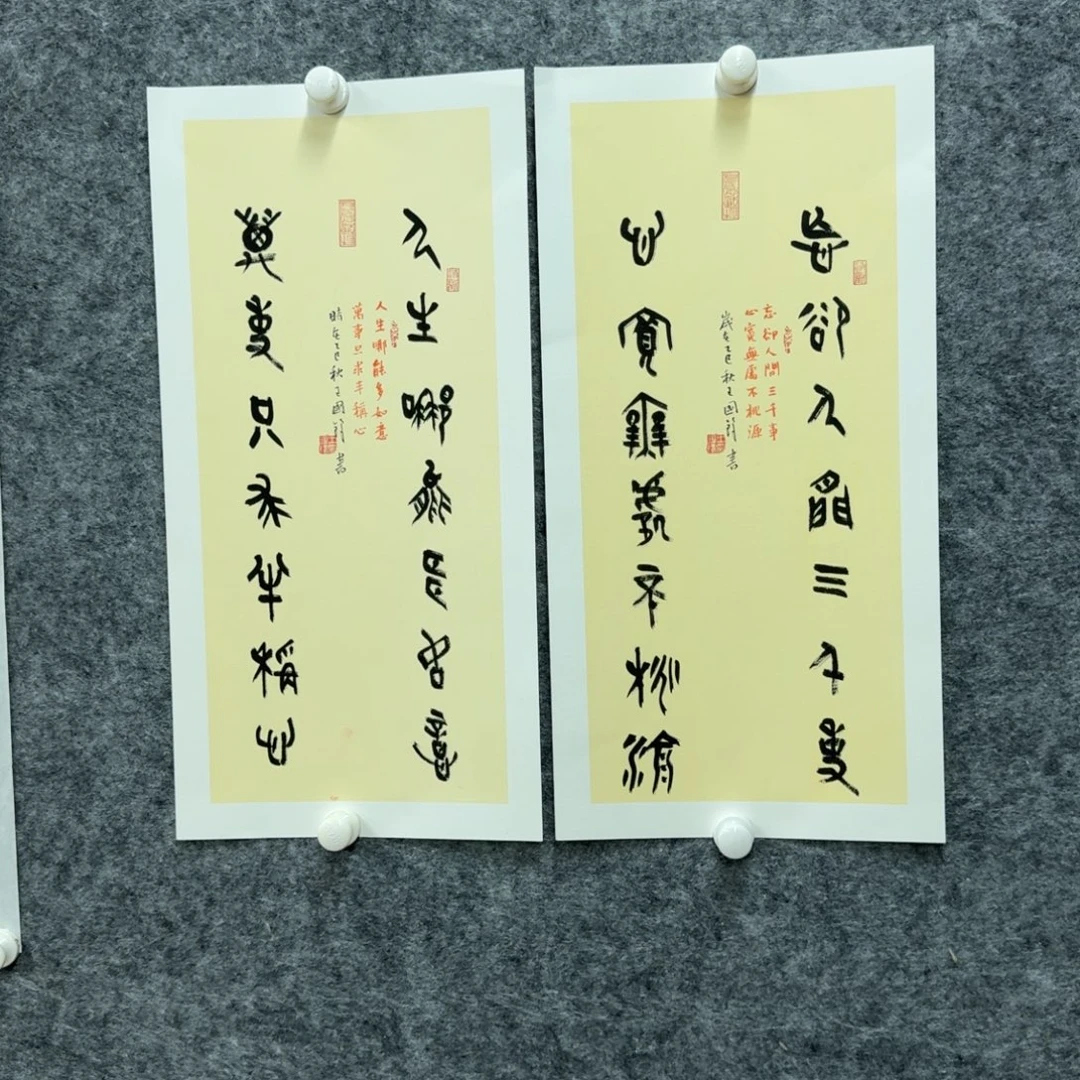 忘卻人間三千事
忘卻人間三千事
心寬無處不桃源
歲在乙巳秋王國書
心寬無處不桃源
人生哪能多如意
人生哪能多如意
萬事只求半稱心
時在乙巳秋王國書
萬事只求半稱心